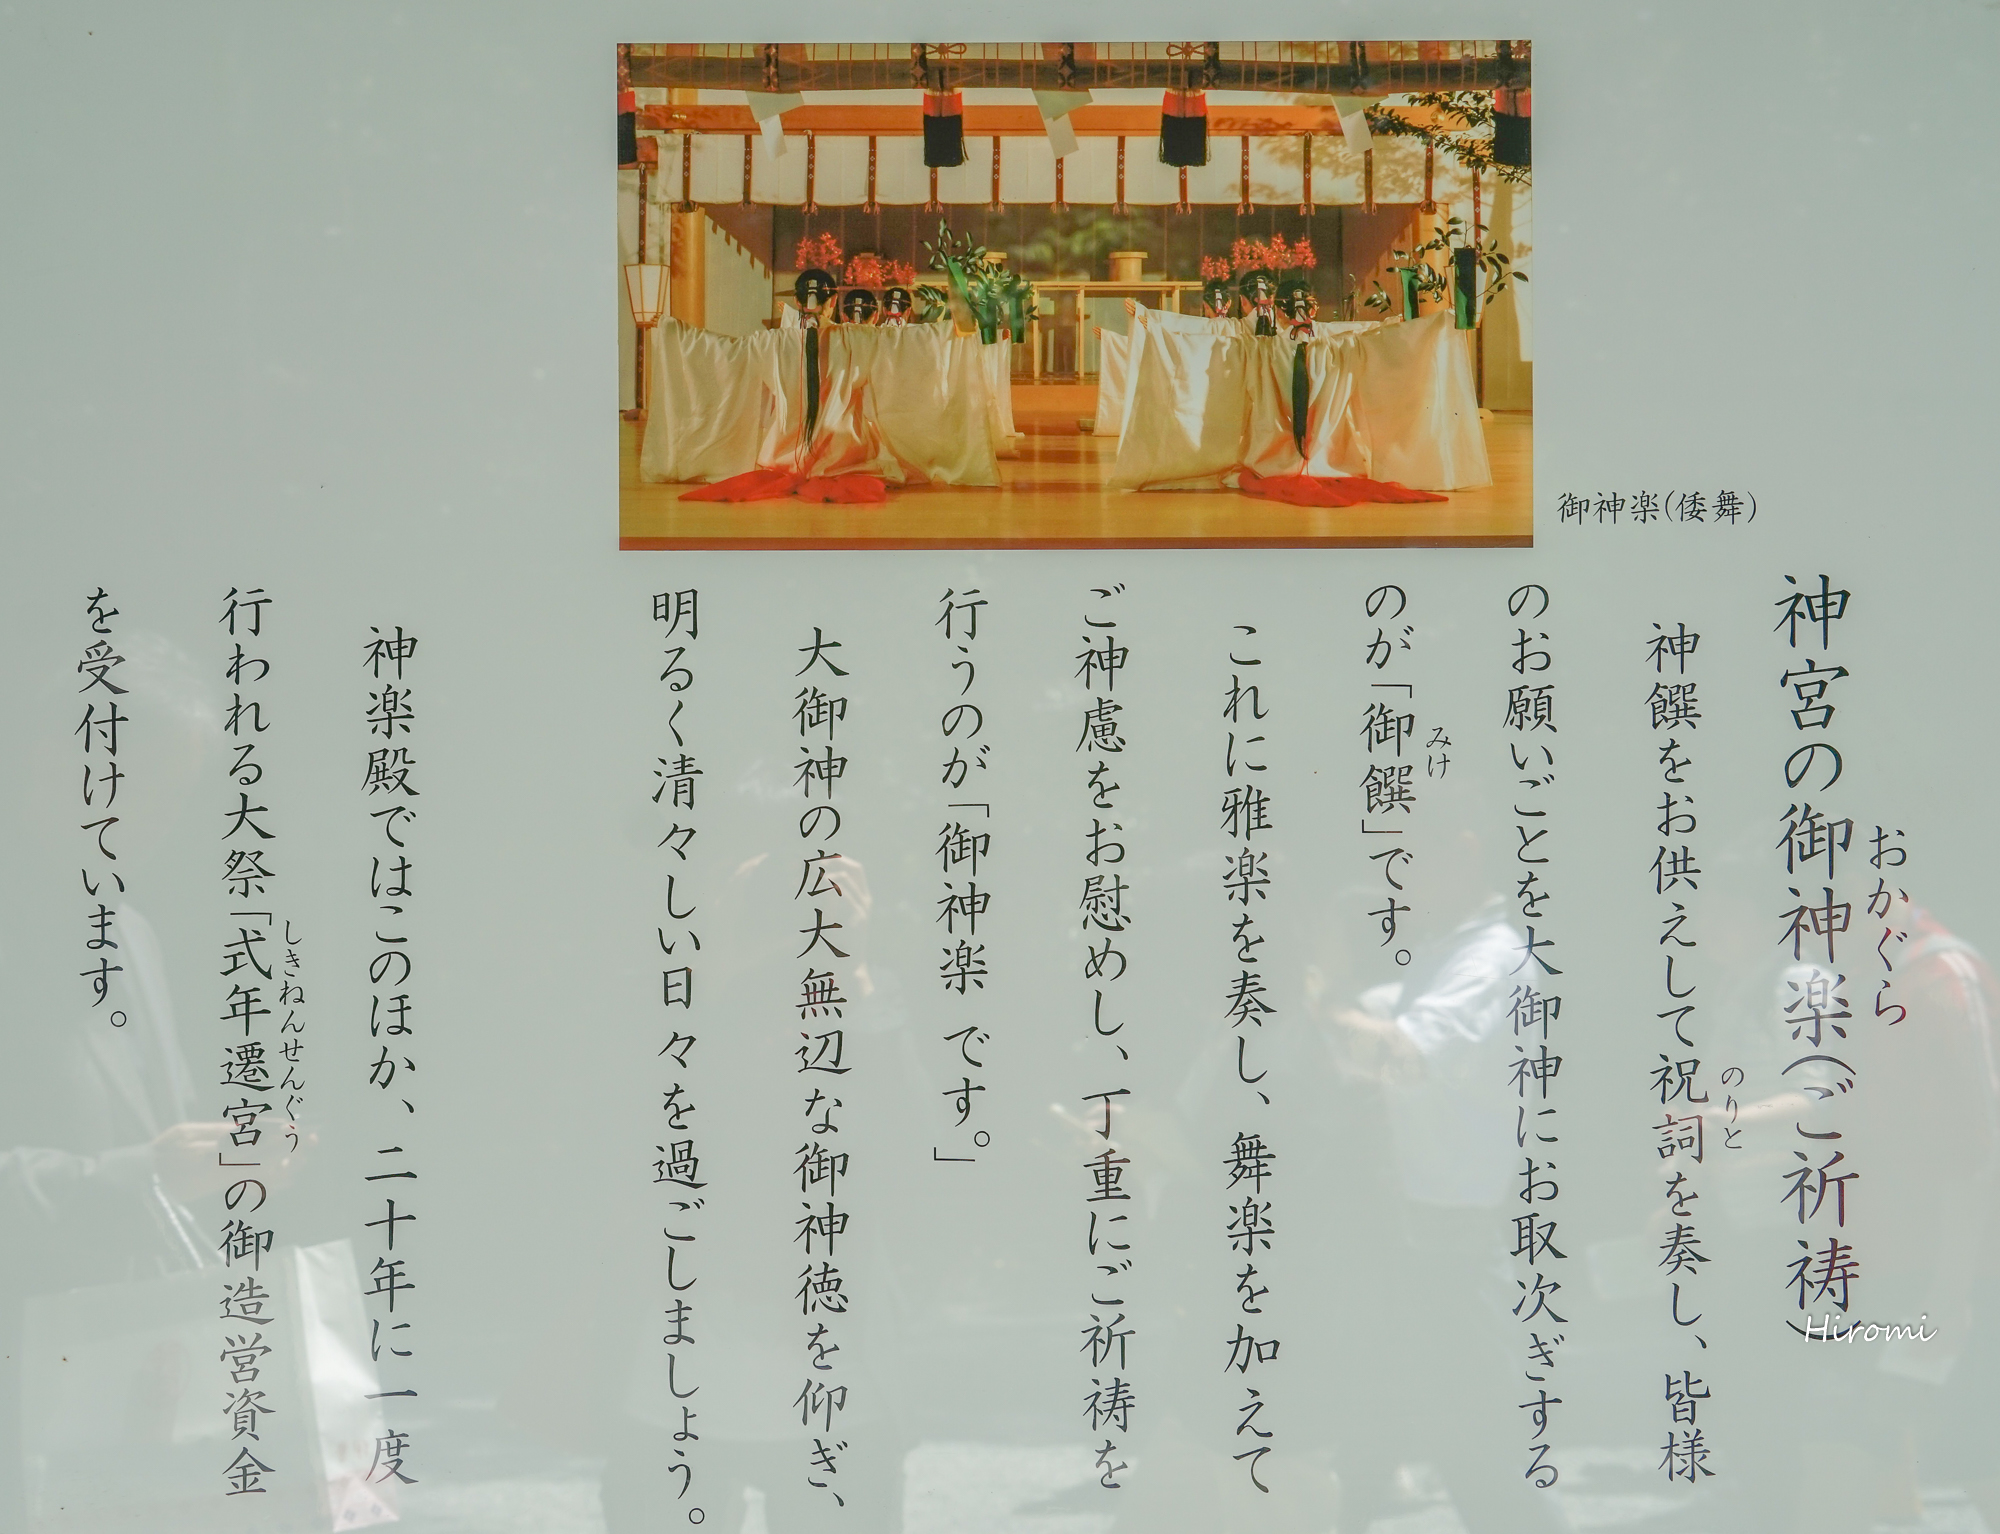 御神楽(倭舞)
神宮の御神楽(ご祈祷)
おかぐら
神饌をお供えして祝詞を奏し、皆様
のりと
のお願いごとを大御神にお取次ぎする
のが「御饌」です。
みけ
これに雅楽を奏し、舞楽を加えて
ご神慮をお慰めし、丁重にご祈祷を
行うのが「御神楽 です。」
大御神の広大無辺な御神徳を仰ぎ、
明るく清々しい日々を過ごしましょう。
神楽殿ではこのほか、二十年に一度
行われる大祭「式年遷宮」の御造営資金
しきねんせんぐう
を受付けています。
Hiromi